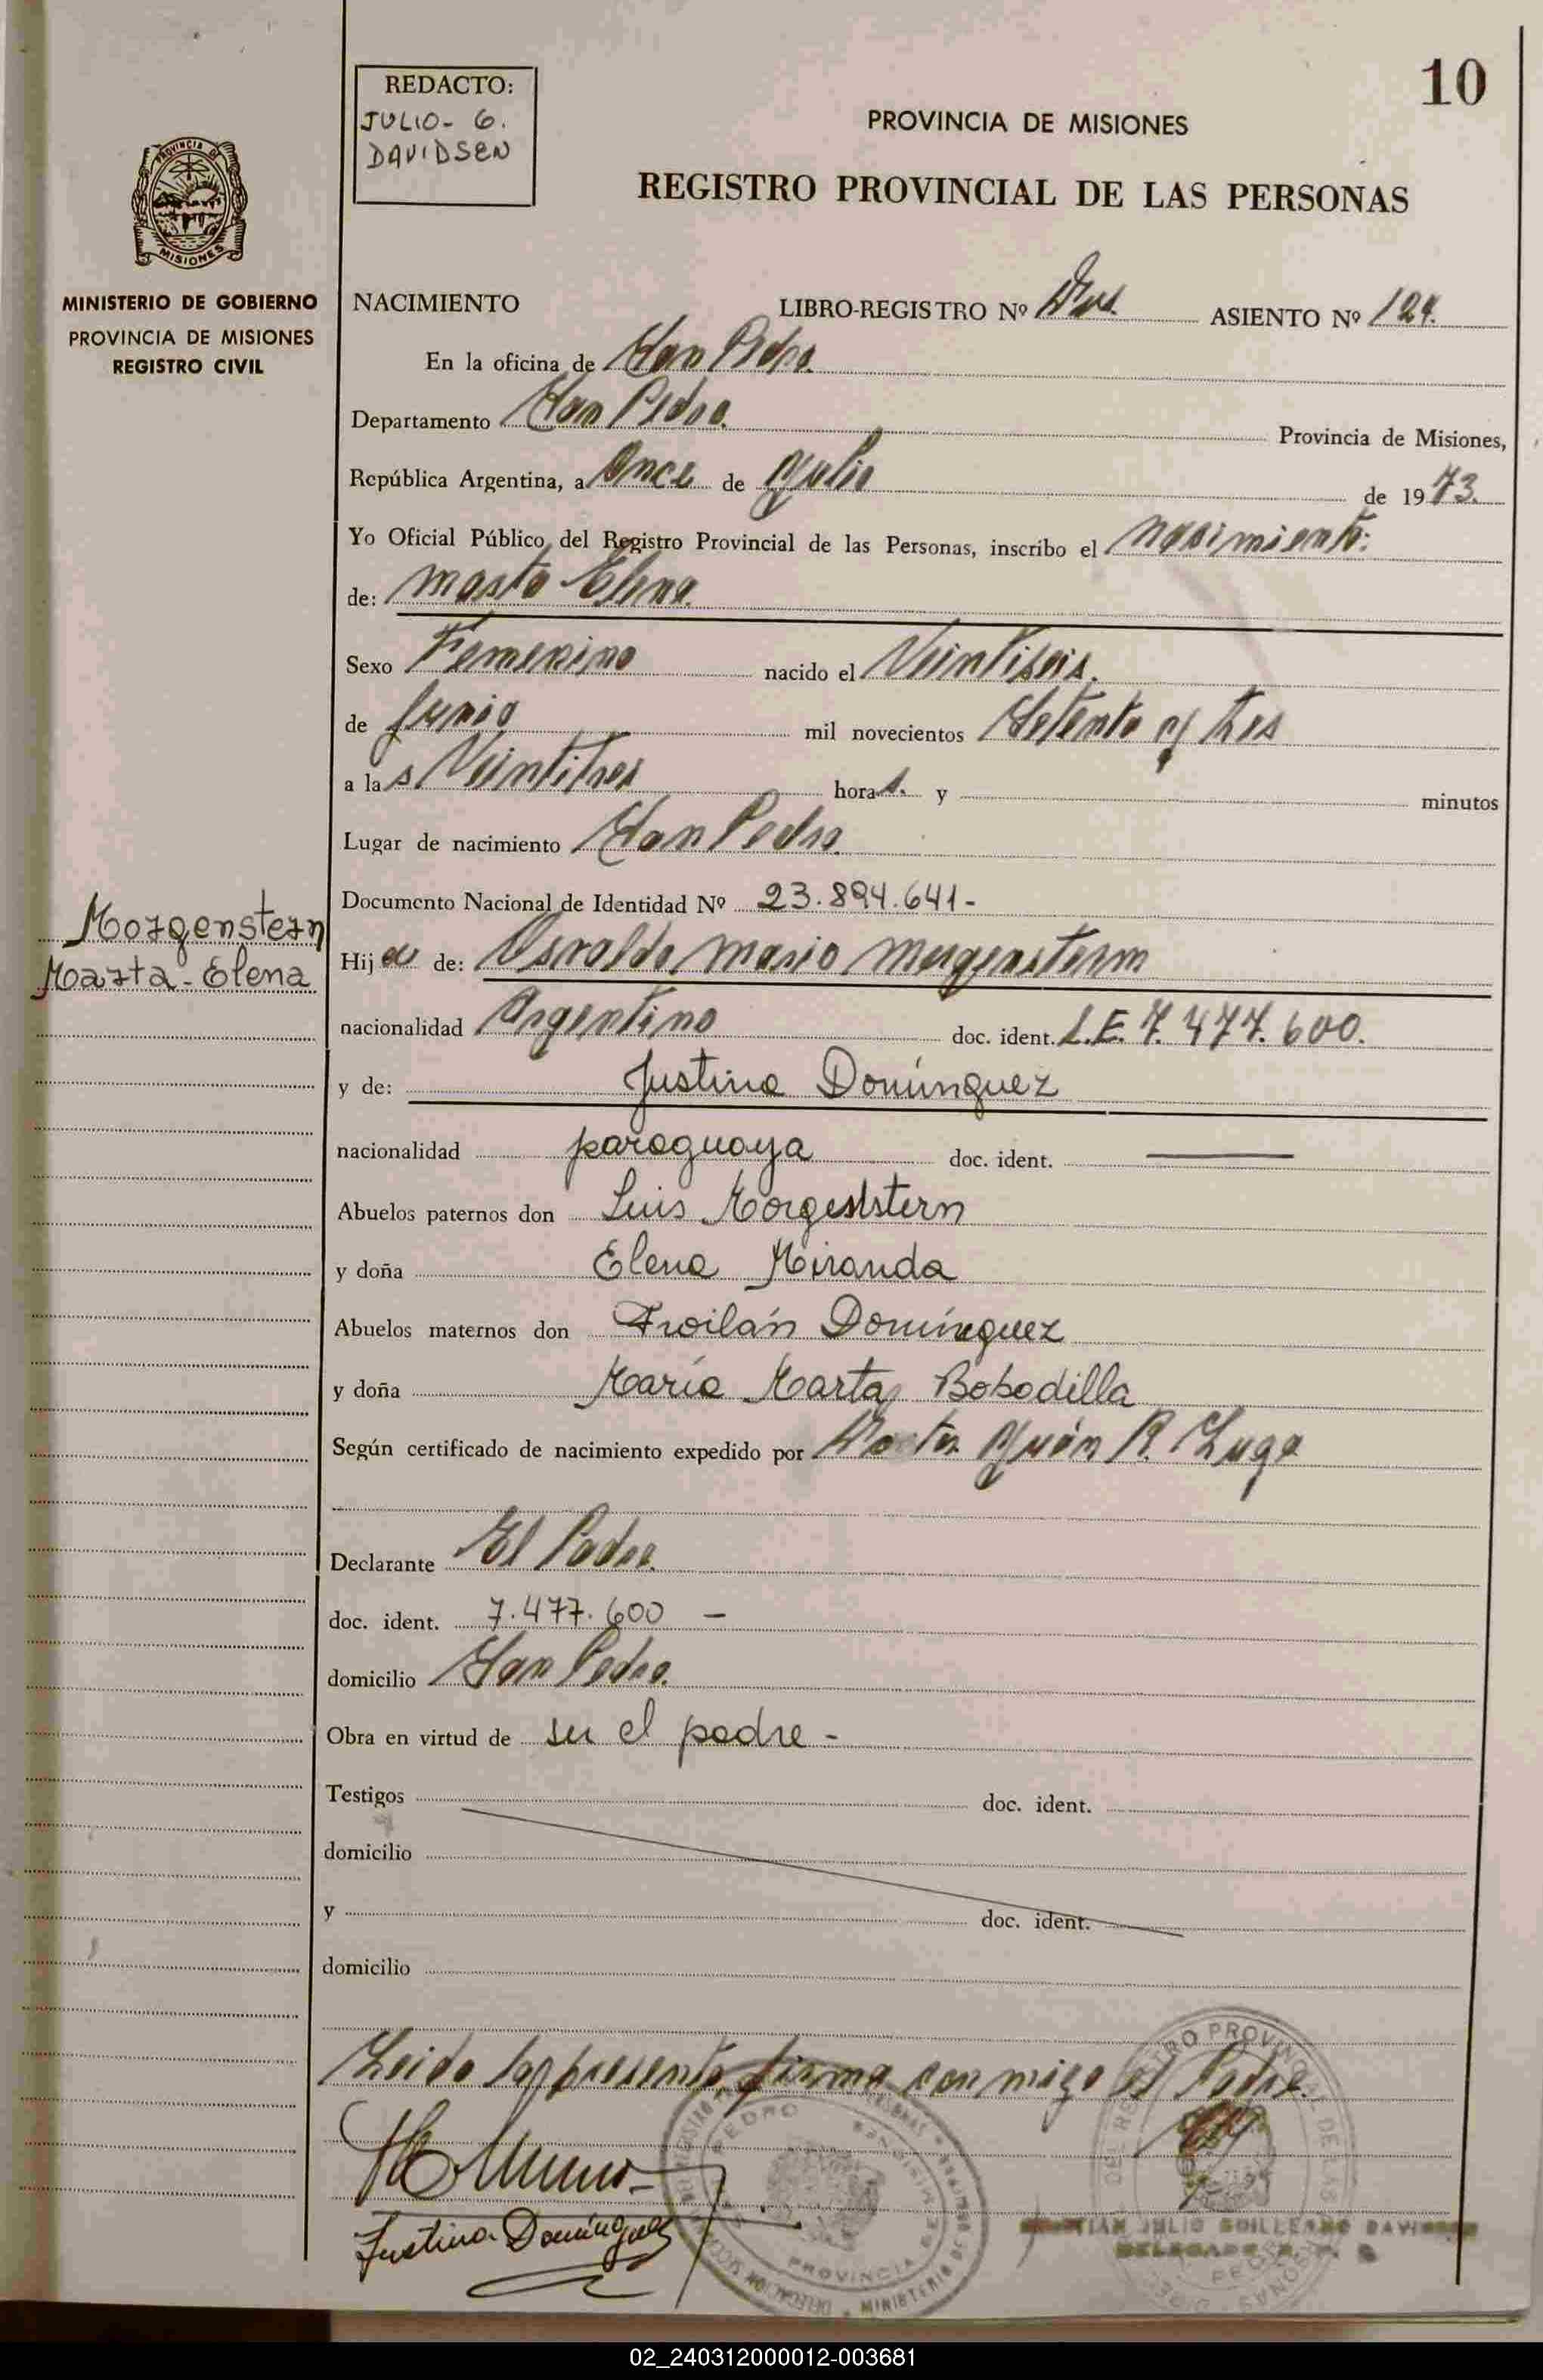 10
REDACTO:
JULIO - G.
DAVIDSEN
PROVINCIA DE MISIONES
REGISTRO PROVINCIAL DE LAS PERSONAS
PROVINCIA DE
MISIONES
MINISTERIO DE GOBIERNO
PROVINCIA DE MISIONES
REGISTRO CIVIL
NACIMIENTO LIBRO-REGISTRO Nº Dos. ASIENTO Nº 124.
En la oficina de San Pedro.
Departamento San Pedro. Provincia de Misiones,
República Argentina, a Once de Julio de 1973.
Yo Oficial Público, del Registro Provincial de las Personas, inscribo el nacimiento:
de: Marta Elena.
Sexo Femenino nacido el Veintiseis.
de Junio mil novecientos Setenta y tres
a las Veintitres horas. y minutos
Lugar de nacimiento San Pedro.
Documento Nacional de Identidad Nº 23.894.641-
Morgenstern
Marta - Elena
Hija de: Osvaldo Mario Morgenstern
nacionalidad Argentino doc. ident. L.E. 7.477.600.
y de: Justina Domínguez
nacionalidad paraguaya doc. ident.
Abuelos paternos don Luis
y doña Elena Miranda
Abuelos maternos don Froilán Domínguez
y doña María Marta Bobadilla
Según certificado de nacimiento expedido por Doctor Juán R. Lugo
Declarante El Padre.
doc. ident. 7.477.600 -
domicilio San Pedro.
Obra en virtud de ser el padre -
Testigos doc. ident.
domicilio
y doc. ident.
domicilio
Leido la presente, firma conmigo el Padre.
Justina Domínguez
PROVINCIA DE MISIONES
JULIO GUILLERMO
02_240312000012-003681